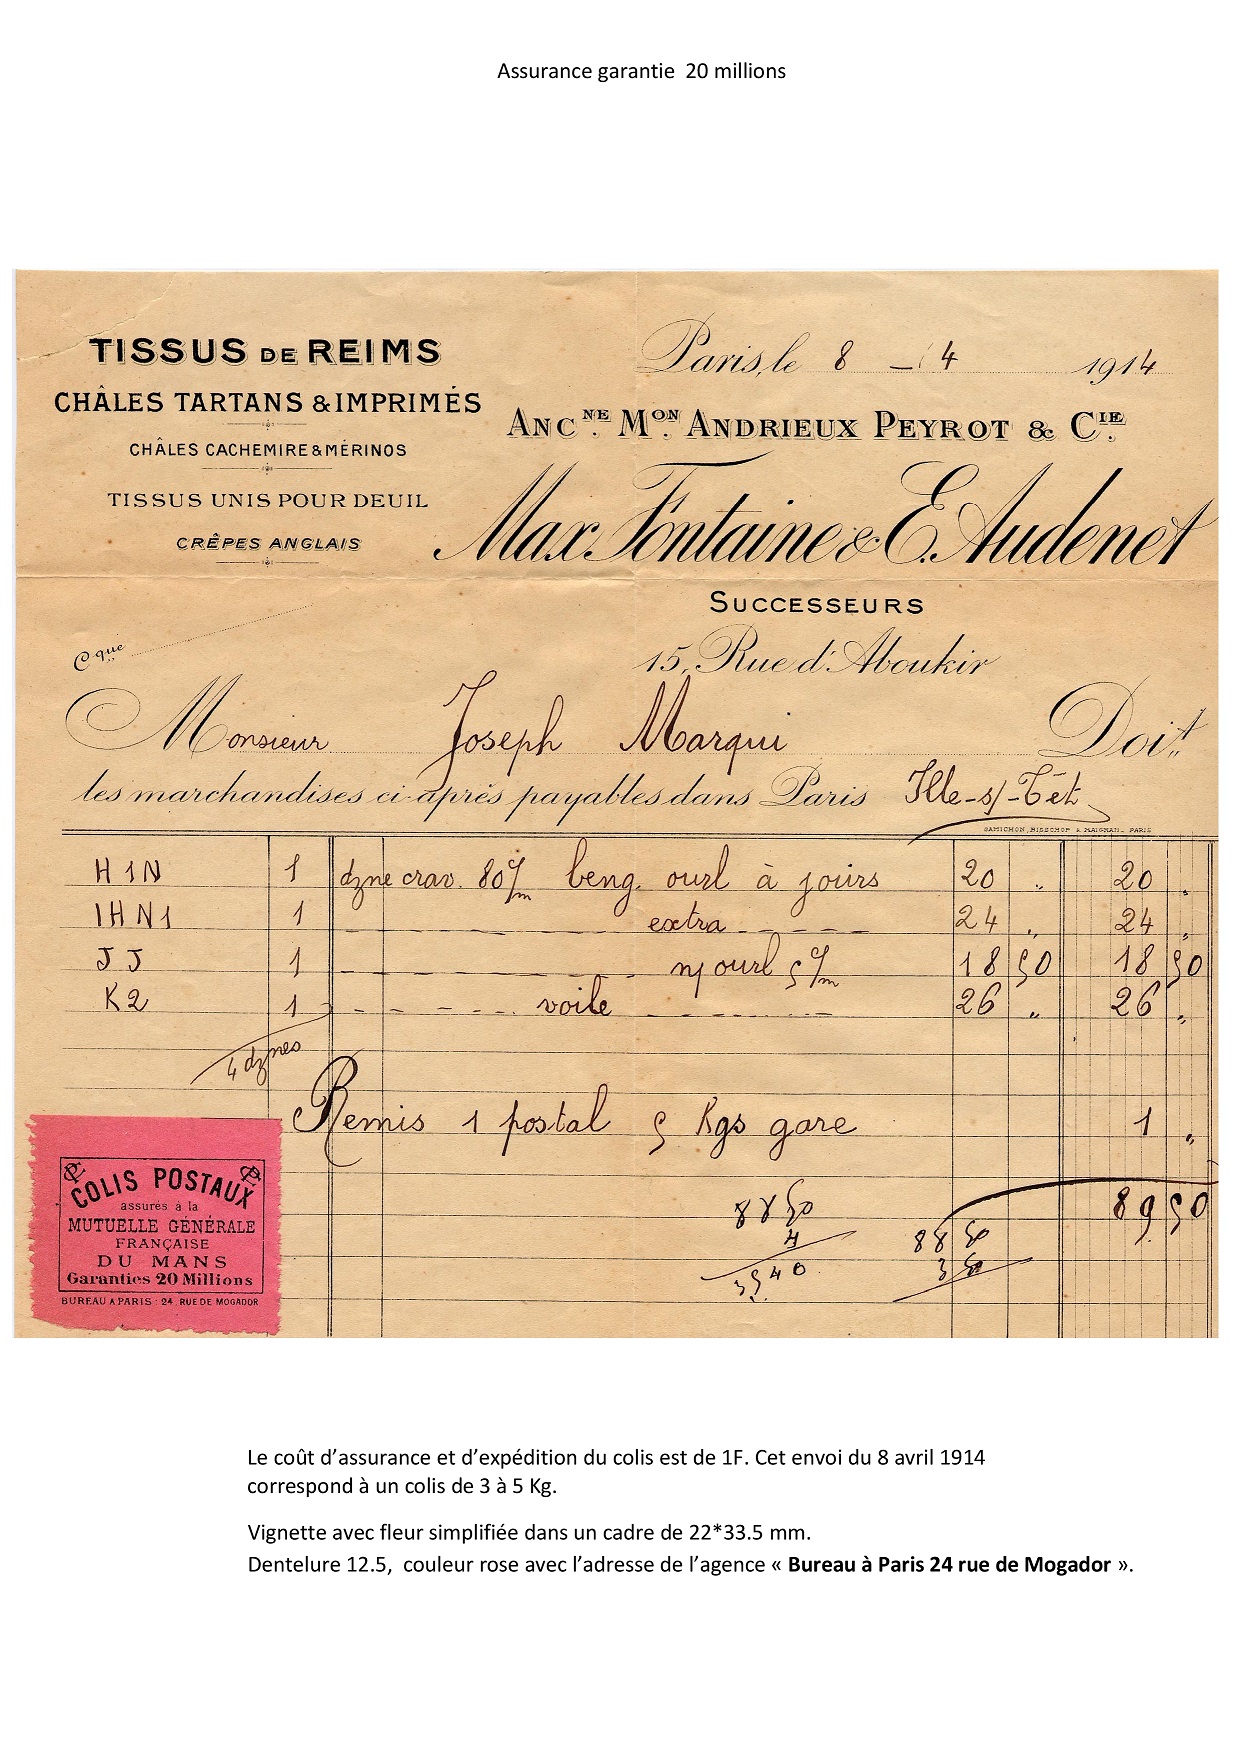 Assurance garantie 20 millions
TISSUS DE REIMS
CHÂLES TARTANS & IMPRIMÉS
CHÂLES CACHEMIRE & MÉRINOS
TISSUS UNIS POUR DEUIL
CRÊPES ANGLAIS
Paris, le 8 - 4 1914
ANCNE. MON. ANDRIEUX PEYROT & CIE.
Max. Fontaine & E. Audenet
SUCCESSEURS
15, Rue d'Aboukir
Cque
Monsieur Joseph Marqui Doit
les marchandises ci-après payables dans Paris Ille-s/-Têt
GAMICHON, BISSCHOP & MAIGNAN _ PARIS
H1N 1 dzne crav. 80 c/m beng. ourl à jours 20 " 20 "
IHN1 1 extra 24 " 24 "
JJ 1 ourl 5 c/m 18 50 18 50
K2 1 voile 26 " 26 "
4 dznes
Remis 1 postal 5 Kgs gare 1 "
89 50
88 50
4
3540
88 50
3 50
COLIS POSTAUX
assurés à la
MUTUELLE GÉNÉRALE
FRANÇAISE
DU MANS
Garanties 20 Millions
BUREAU A PARIS : 24 RUE DE MOGADOR
Le coût d’assurance et d’expédition du colis est de 1F. Cet envoi du 8 avril 1914
correspond à un colis de 3 à 5 Kg.
Vignette avec fleur simplifiée dans un cadre de 22*33.5 mm.
Dentelure 12.5, couleur rose avec l’adresse de l’agence « Bureau à Paris 24 rue de Mogador ».